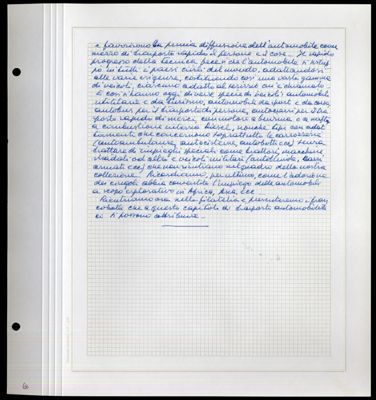 e favoriscono la prima diffusione dell'automobile come
mezzo di trasporto rapido di persone e di cose. Il rapido
progresso della tecnica fece sì che l'automobile si svilup
pò in tutti i paesi civili del mondo, adattandosi
alle varie esigenze, costituendo così una vasta gamma
di veicoli, ciascuno adatto ai servizi cui è chiamato.
E così si hanno oggi diverse specie di veicoli: automobili
utilitarie e da turismo, automobili da sport e da corsa,
autobus per il trasporto di persone, autocarri per il tra
sporto rapido di merci, con motore a benzina e a nafta
a combustione interna Diesel, nonché tipi con adat
tamenti che concernono soprattutto le carrozzerie
(autoambulanze, autocisterne, autobotti ecc) senza
trattare di impieghi speciali come trattori, macchine
stradali ed altri e veicoli militari (autoblinde, carri
armati ecc) che non rientrano nel quadro della nostra
collezione. Ricordiamo, per ultimo, come l'adozione
dei cingoli abbia consentito l'impiego delle automobili
a scopo esplorativo in Africa, Asia, ecc.
Rientriamo ora nella filatelia e presentiamo i fran
cobolli che a questo capitolo di trasporti automobilisti
ci si possono attribuire.
6